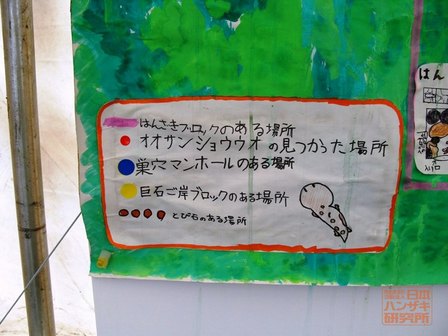 はんざきブロックのある場所
オオサンショウウオの見つかった場所
巣穴マンホールのある場所
巨石ご岸ブロックのある場所
とび石のある場所
はん
日本
ハンザキ
研究所